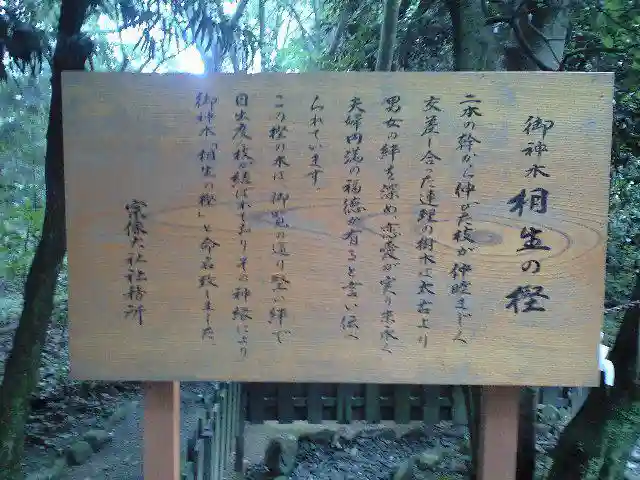 御神木 相生の樫
二本の幹から伸びた枝が仲睦まじく
交差し合った連理の樹木は太古より
男女の絆を深め恋愛が実り末永く
夫婦円満の福徳が有ると言い伝へ
られています
この樫の木は、御覧の通り堅い絆で
目出度く枝が結ばれており、その神縁により
御神木「相生の樫」と命名致しました。
宗像大社社務所